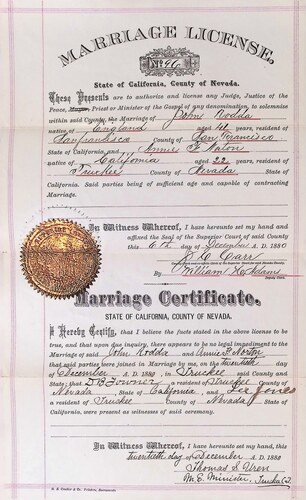 MARRIAGE LICENSE,
No. 96
State of California, County of Nevada.
These Presents are to authorize and license any Judge, Justice of the
Peace, Priest or Minister of the Gospel of any denomination, to solemnize
within said County, the Marriage of John Rodda
native of England aged 41 years, resident of
San Francisco County of San Francisco
State of California and Annie F. Naton
native of California aged 22 years, resident of
Truckee County of Nevada State of
California. Said parties being of sufficient age and capable of contracting
Marriage.
In Witness Whereof, I have hereunto set my hand and
affixed the Seal of the Superior Court of said County
this 6th day of December A. D. 1880
Clerk
By William H. Adams
Deputy Clerk
Marriage Certificate.
STATE OF CALIFORNIA, COUNTY OF NEVADA.
I Hereby Certify, that I believe the facts stated in the above license to
be true, and that upon due inquiry, there appears to be no legal impediment to the
Marriage of said John Rodda and Annie F. Norton
that said parties were joined in Marriage by me, on the twentieth day
of December A. D. 1880 in Truckee said County and
State; that D B Towner a resident of Truckee County of
Nevada, State of California, and Lee Jones
a resident of Truckee County of Nevada State of
California, were present as witnesses of said ceremony.
In Witness Whereof, I have hereunto set my hand, this
twentieth day of December A. D. 1880
Thomas S. Uren
M. E. Minister, Truckee